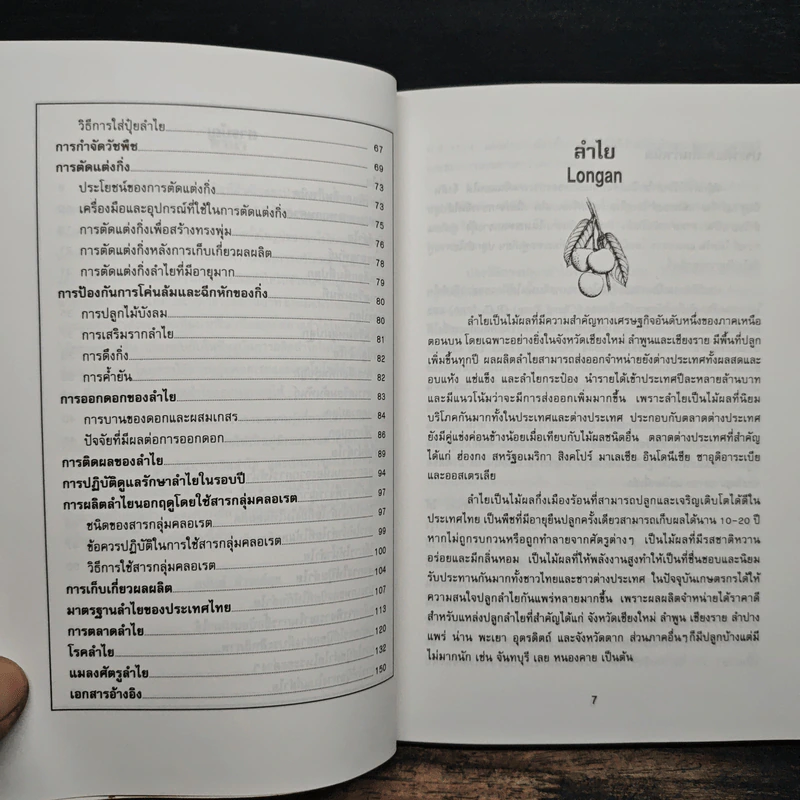 วิธีการใส่ปุ๋ยลำไย 67
การกำจัดวัชพืช 69
การตัดแต่งกิ่ง 73
ประโยชน์ของการตัดแต่งกิ่ง 73
เครื่องมือและอุปกรณ์ที่ใช้ในการตัดแต่งกิ่ง 75
การตัดแต่งกิ่งเพื่อสร้างทรงพุ่ม 76
การตัดแต่งกิ่งหลังการเก็บเกี่ยวผลผลิต 78
การตัดแต่งกิ่งลำไยที่มีอายุมาก 79
การป้องกันการโค่นล้มและฉีกหักของกิ่ง 80
การปลูกไม้บังลม 80
การเสริมรากลำไย 81
การดึงกิ่ง 82
การค้ำยัน 82
การออกดอกของลำไย 83
การบานของดอกและผสมเกสร 84
ปัจจัยที่มีผลต่อการออกดอก 86
การติดผลของลำไย 89
การปฏิบัติดูแลรักษาลำไยในรอบปี 94
การผลิตลำไยนอกฤดูโดยใช้สารกลุ่มคลอเรต 97
ชนิดของสารกลุ่มคลอเรต 97
ข้อควรปฏิบัติในการใช้สารกลุ่มคลอเรต 99
วิธีการใช้สารกลุ่มคลอเรต 100
การเก็บเกี่ยวผลผลิต 104
มาตรฐานลำไยของประเทศไทย 107
การตลาดลำไย 113
โรคลำไย 120
แมลงศัตรูลำไย 132
เอกสารอ้างอิง 150
ลำไย
Longan
ลำไยเป็นไม้ผลที่มีความสำคัญทางเศรษฐกิจอันดับหนึ่งของภาคเหนือ
ตอนบน โดยเฉพาะอย่างยิ่งในจังหวัดเชียงใหม่ ลำพูนและเชียงราย มีพื้นที่ปลูก
เพิ่มขึ้นทุกปี ผลผลิตลำไยสามารถส่งออกจำหน่ายยังต่างประเทศทั้งผลสดและ
อบแห้ง แช่แข็ง และลำไยกระป๋อง นำรายได้เข้าประเทศปีละหลายล้านบาท
และมีแนวโน้มว่าจะมีการส่งออกเพิ่มมากขึ้น เพราะลำไยเป็นไม้ผลที่นิยม
บริโภคกันมากทั้งในประเทศและต่างประเทศ ประกอบกับตลาดต่างประเทศ
ยังมีคู่แข่งค่อนข้างน้อยเมื่อเทียบกับไม้ผลชนิดอื่น ตลาดต่างประเทศที่สำคัญ
ได้แก่ ฮ่องกง สหรัฐอเมริกา สิงคโปร์ มาเลเซีย อินโดนีเซีย ซาอุดิอาระเบีย
และออสเตรเลีย
ลำไยเป็นไม้ผลกึ่งเมืองร้อนที่สามารถปลูกและเจริญเติบโตได้ดีใน
ประเทศไทย เป็นพืชที่มีอายุยืนปลูกครั้งเดียวสามารถเก็บผลได้นาน 10-20 ปี
หากไม่ถูกรบกวนหรือถูกทำลายจากศัตรูต่างๆ เป็นไม้ผลที่มีรสชาติหวาน
อร่อยและมีกลิ่นหอม เป็นไม้ผลที่ให้พลังงานสูงทำให้เป็นที่ชื่นชอบและนิยม
รับประทานกันมากทั้งชาวไทยและชาวต่างประเทศ ในปัจจุบันเกษตรกรได้ให้
ความสนใจปลูกลำไยกันแพร่หลายมากขึ้น เพราะผลผลิตจำหน่ายได้ราคาดี
สำหรับแหล่งปลูกลำไยที่สำคัญได้แก่ จังหวัดเชียงใหม่ ลำพูน เชียงราย ลำปาง
แพร่ น่าน พะเยา อุตรดิตถ์ และจังหวัดตาก ส่วนภาคอื่นๆก็มีปลูกบ้างแต่มี
ไม่มากนัก เช่น จันทบุรี เลย หนองคาย เป็นต้น
7